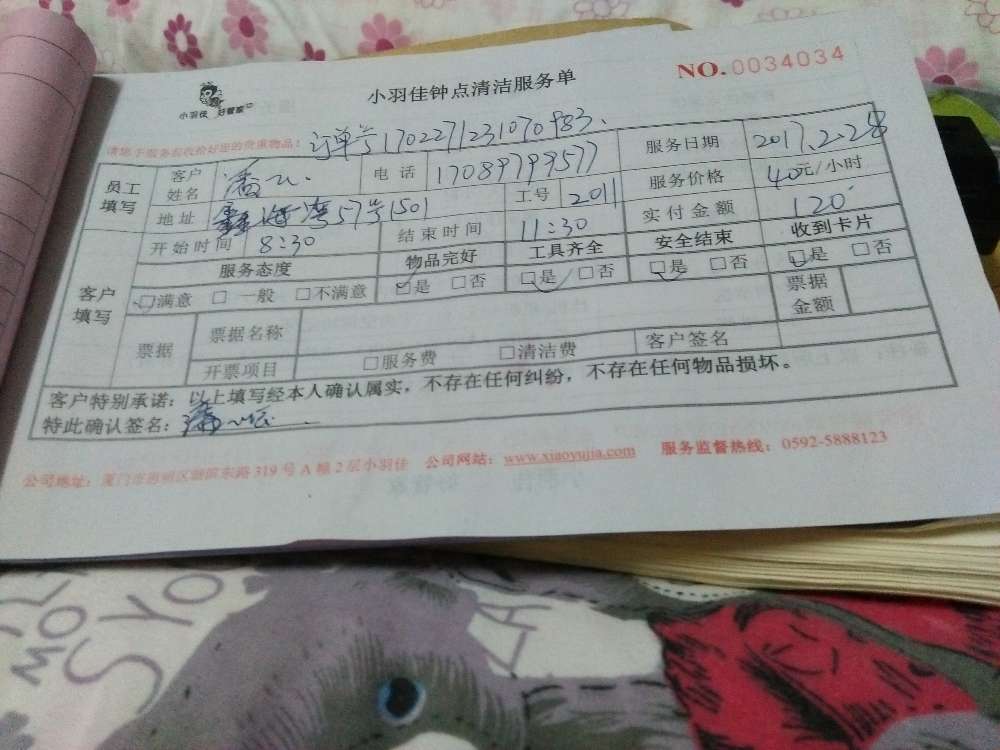 小羽佳 好管家
小羽佳钟点清洁服务单
NO.0034034
请您于服务前收拾好您的贵重物品!
订单号1702271231070983.
员工填写
客户姓名 潘 电话 17089799577 服务日期 2017.2.28
地址 鑫海湾57号1501 工号 2011 服务价格 40元/小时
开始时间 8:30 结束时间 11:30 实付金额 120
客户填写
服务态度 物品完好 工具齐全 安全结束 收到卡片
□满意 □一般 □不满意 □是 □否 □是 □否 □是 □否 □是 □否
票据 票据名称 票据金额
开票项目 □服务费 □清洁费 客户签名
客户特别承诺:以上填写经本人确认属实,不存在任何纠纷,不存在任何物品损坏。
特此确认签名:潘
公司地址:厦门市思明区湖滨东路319号A幢2层小羽佳 公司网站:www.xiaoyujia.com 服务监督热线:0592-5888123
MOLLY
SYO